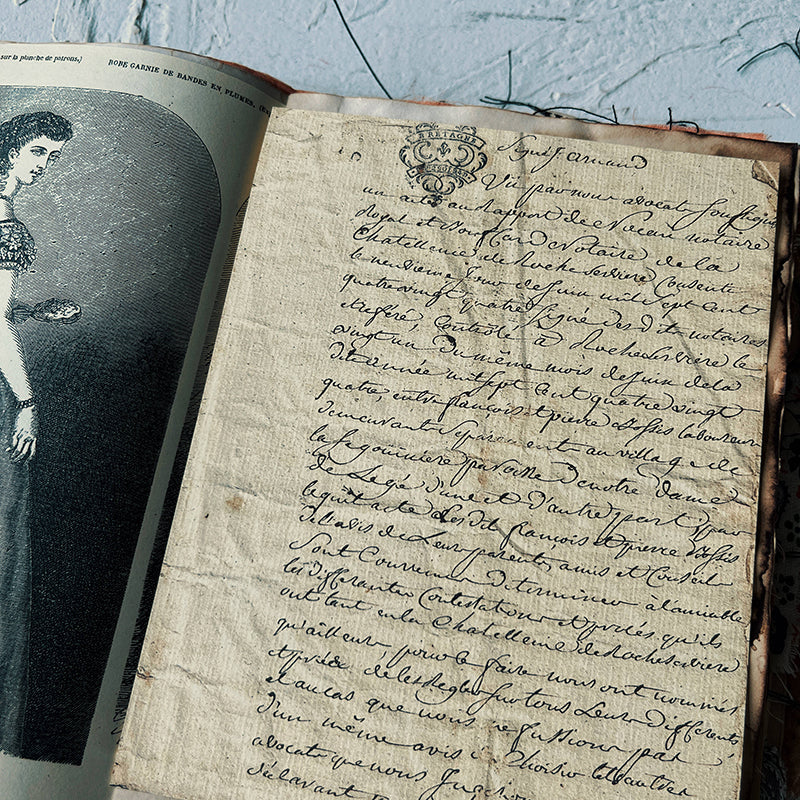 sur la planche de patrons.)
ROBE GARNIE DE BANDES EN PLUMES.
BRETAGNE
Signé f. Arnaud
Vu par nous avocats soussignés
un acte au Rapport de notaire
Royal et Notaire de la
Chatellenie de Rocheserviere Consenti
le jour de juin mil sept cent
quatre vingt quatre signé des dits notaires
et referé, Controlé a Rocheserviere le
vingt un du même mois de juin de la
dite année mil sept cent quatre vingt
quatre, entre françois et pierre laboureurs
demeurants separement au village de
la paroisse de notre dame
de Legé d'une et d'autre part, par
lequel acte les dits françois et pierre
de l'avis de Leurs parents, amis et Conseil
sont Convenus de terminer a l'amiable
les differentes Contestations et procés qu'ils
ont tant en la Chatellenie de Rocheserviere
qu'ailleurs pour ce faire nous ont nommés
et priés de les Regler sur tous Leurs differents,
et au cas que nous ne fussions pas
d'un même avis de Choisir
avocats que nous